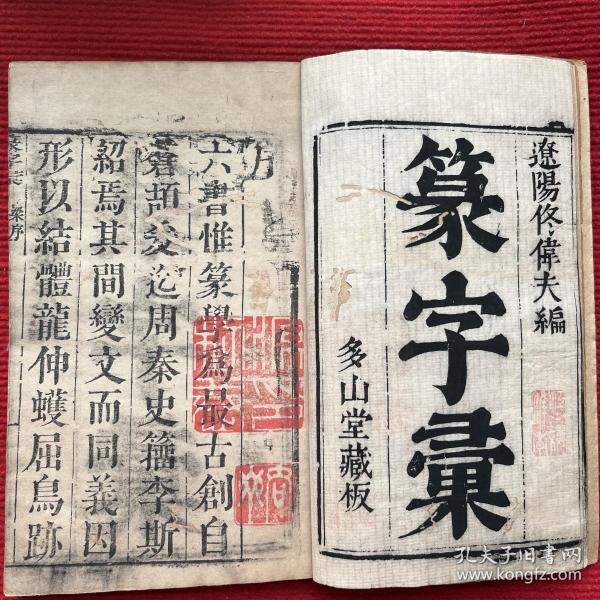 遼陽佟偉夫編
篆字彙
多山堂藏板
六書惟篆學為最古創自
蒼頡爰迄周秦史籀李斯
紹焉其間變文而同義因
形以結體龍伸蠖屈鳥跡
篆字彙 梁序
孔夫子旧书网
www.kongfz.com